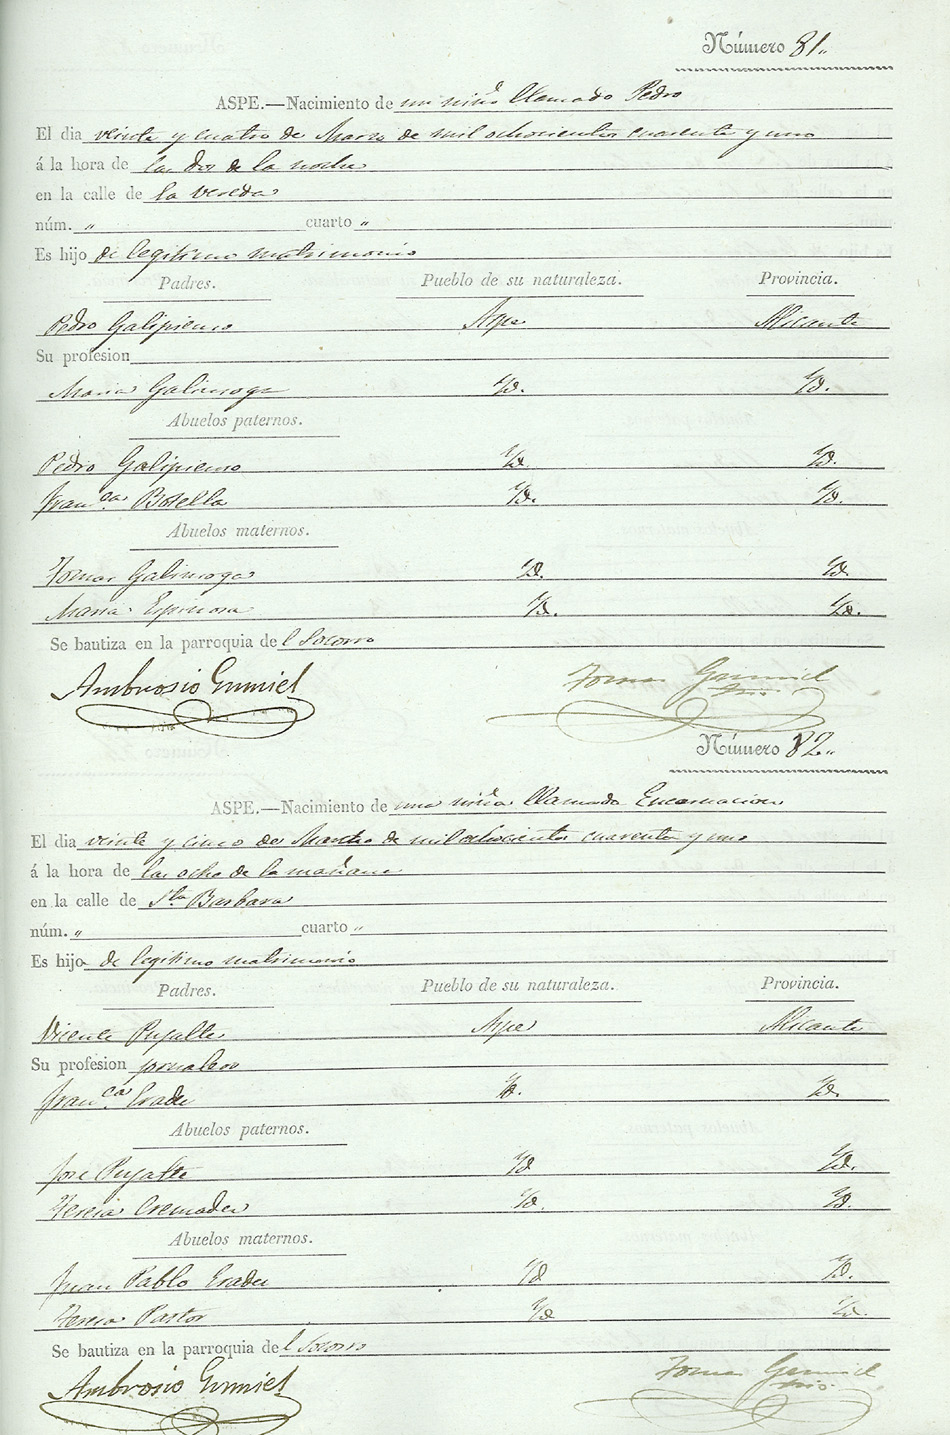 Número 81.
ASPE.—Nacimiento de un niño llamado Pedro
El dia veinte y cuatro de Marzo de mil ochocientos cuarenta y uno
á la hora de las dos de la noche
en la calle de la Vereda
núm. " cuarto "
Es hijo de legitimo matrimonio
Padres. Pueblo de su naturaleza. Provincia.
Pedro Galipienso Aspe Alicante
Su profesion
Maria Galinsoga Yd. Yd.
Abuelos paternos.
Pedro Galipienso Yd. Yd.
Fran.ca Botella Yd. Yd.
Abuelos maternos.
Tomas Galinsoga Yd. Yd.
Maria Espinosa Yd. Yd.
Se bautiza en la parroquia del Socorro
Ambrosio Gumiel Tomas Gumiel
Número 82.
ASPE.—Nacimiento de una niña llamada Encarnacion
El dia veinte y cinco de Marzo de mil ochocientos cuarenta y uno
á la hora de las ocho de la mañana
en la calle de Sta Barbara
núm. " cuarto "
Es hijo de legitimo matrimonio
Padres. Pueblo de su naturaleza. Provincia.
Vicente Pujalte Aspe Alicante
Su profesion jornalero
Fran.ca Erades Yd. Yd.
Abuelos paternos.
Jose Pujalte Yd Yd.
Teresa Cremades Yd. Yd.
Abuelos maternos.
Juan Pablo Erades Yd Yd.
Teresa Pastor Yd Yd.
Se bautiza en la parroquia del Socorro
Ambrosio Gumiel Tomas Gumiel